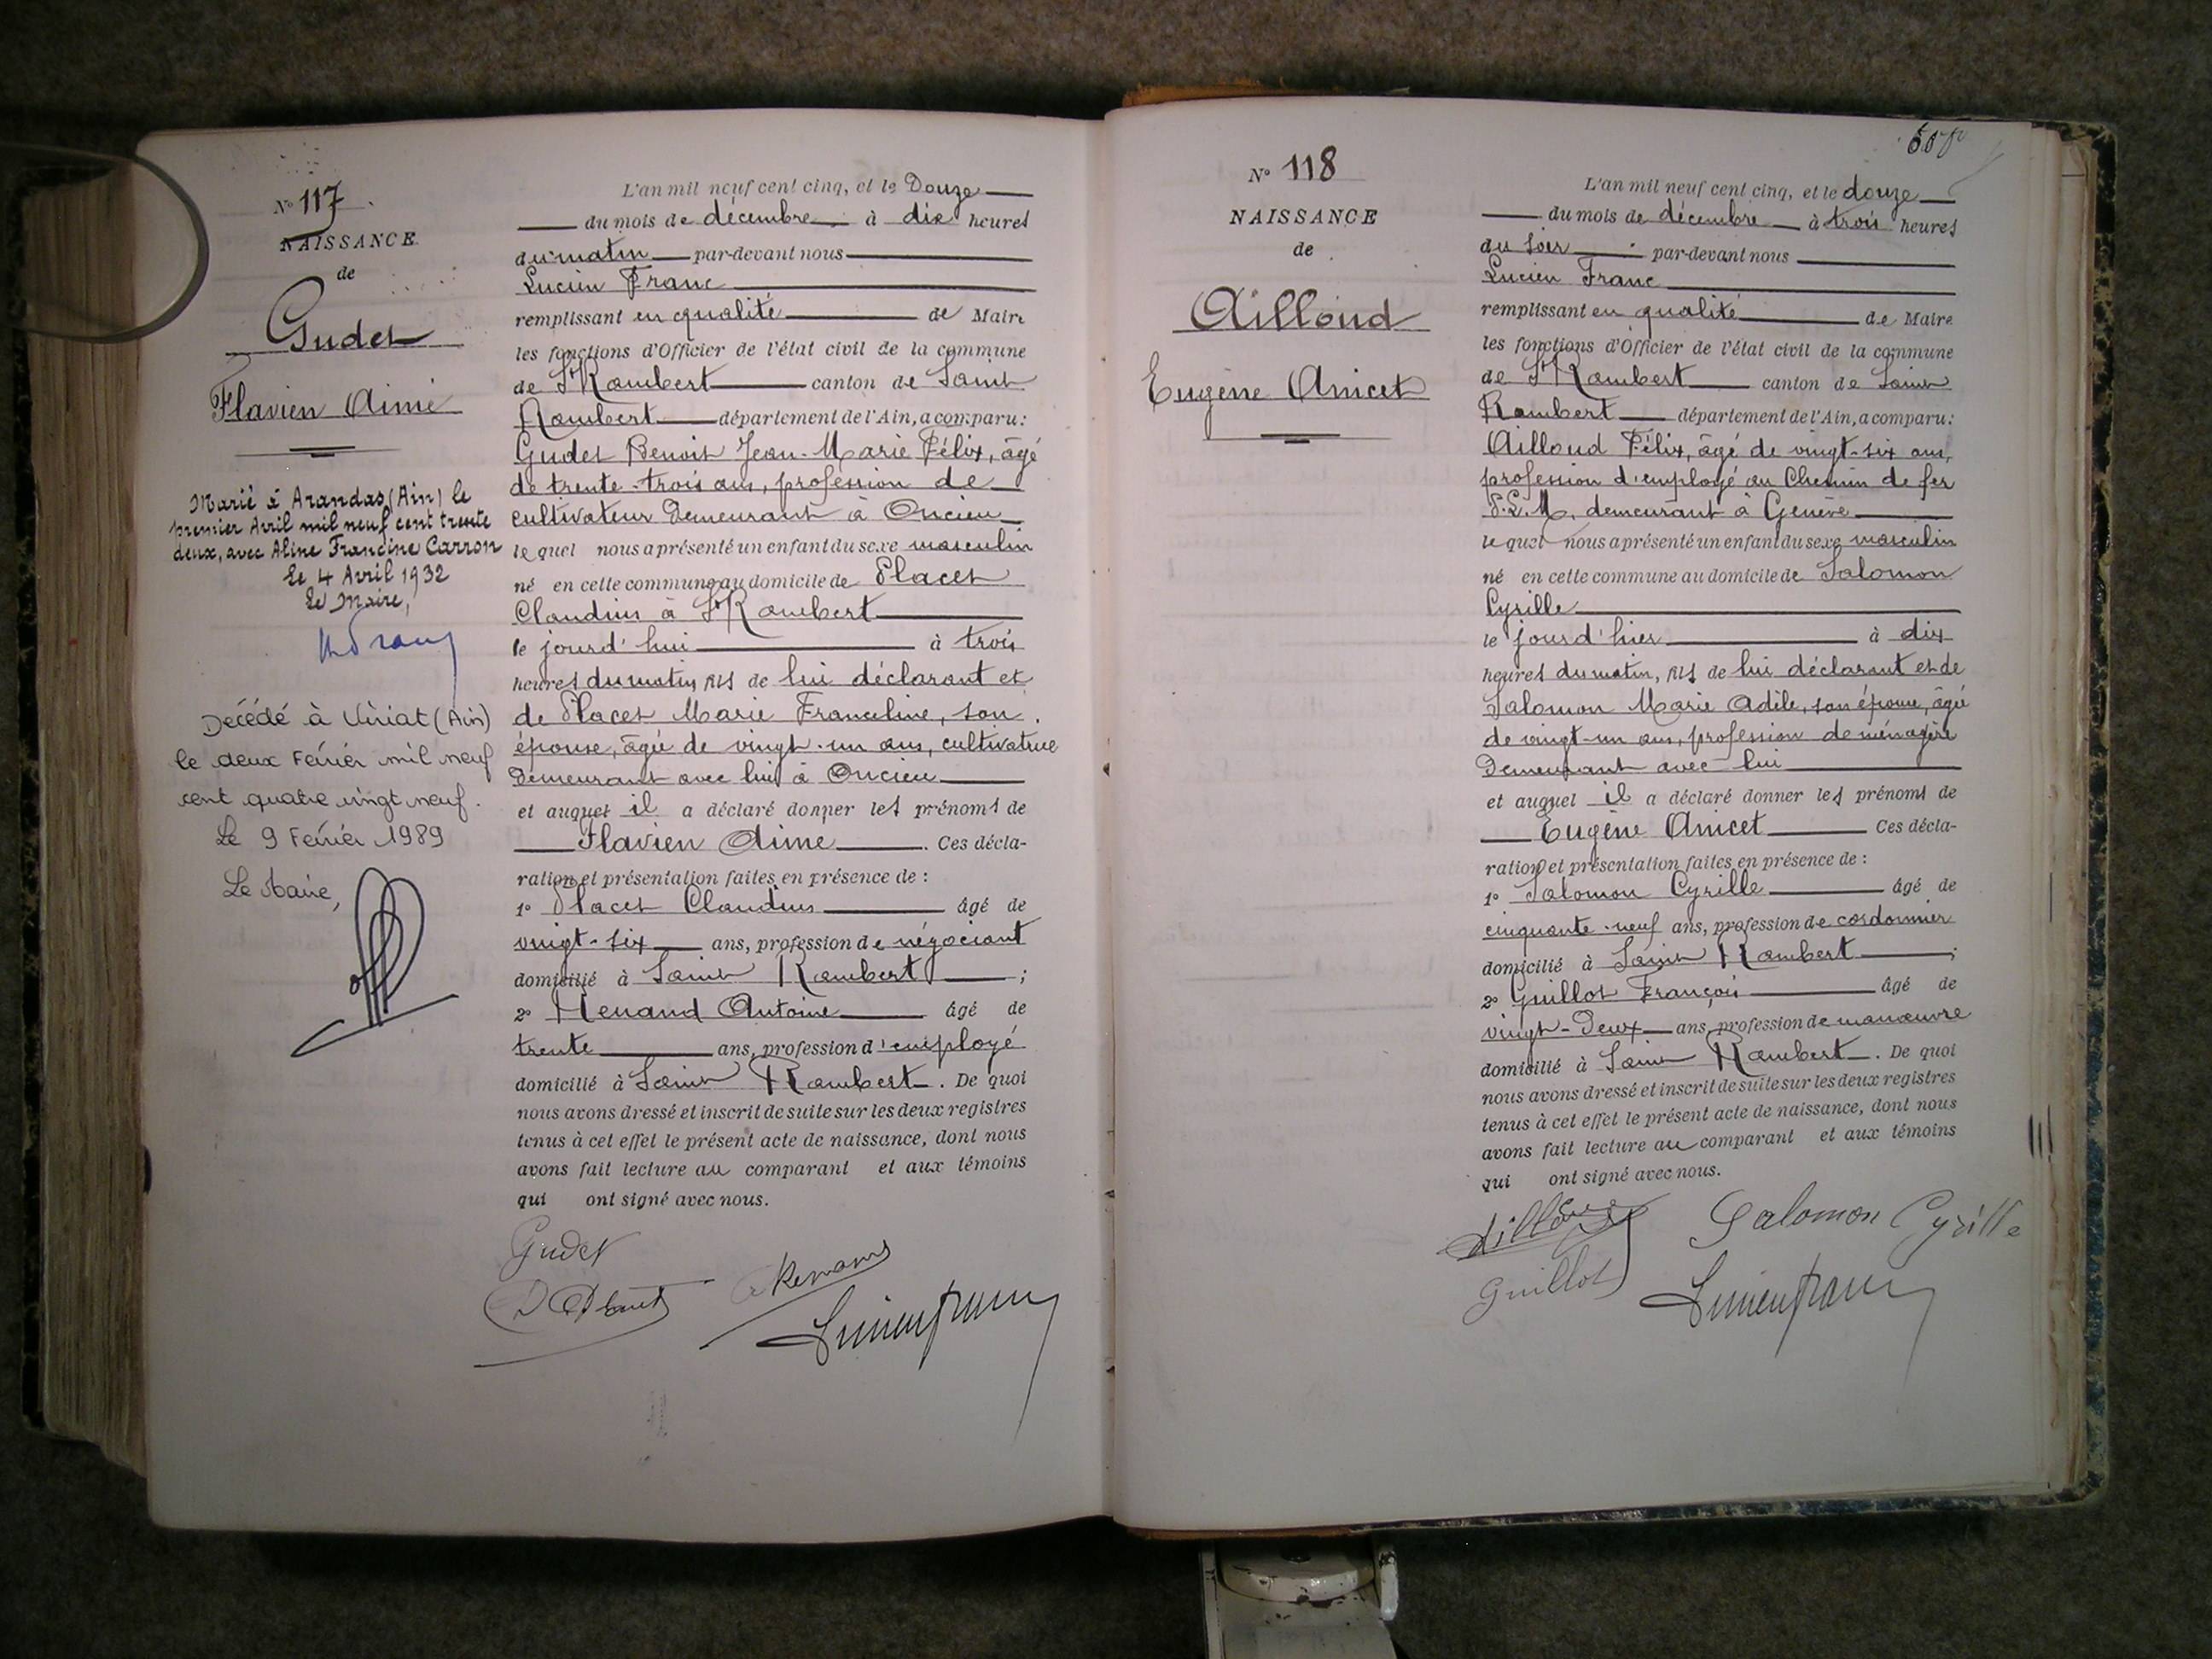 N° 117
NAISSANCE
de
Gudet
Flavien Aimé
Marié à Arandas (Ain) le
premier Avril mil neuf cent trente
deux, avec Aline Francine Carron
Le 4 Avril 1932
Le Maire,
Décédé à Viriat (Ain)
le deux Février mil neuf
cent quatre vingt neuf.
Le 9 Février 1989
Le Maire,
L'an mil neuf cent cinq, et le Douze
du mois de décembre à dix heures
du matin par-devant nous
Lucien Franc
remplissant en qualité de Maire
les fonctions d'Officier de l'état civil de la commune
de St Rambert canton de Saint
Rambert département de l'Ain, a comparu:
Gudet Benoit Jean-Marie Félix, âgé
de trente-trois ans, profession de
cultivateur Demeurant à Oncieu
lequel nous a présenté un enfant du sexe masculin
né en cette commune au domicile de Placet
Claudius à St Rambert
le jourd'hui à trois
heures du matin, fils de lui déclarant et
de Placet Marie Franceline, son
épouse, âgée de vingt-un ans, cultivatrice
Demeurant avec lui à Oncieu
et auquel il a déclaré donner les prénoms de
Flavien Aimé. Ces décla-
ration et présentation faites en présence de :
1° Placet Claudius âgé de
vingt-six ans, profession de négociant
domicilié à Saint Rambert ;
2° Henand Antoine âgé de
trente ans, profession d'employé
domicilié à Saint Rambert. De quoi
nous avons dressé et inscrit de suite sur les deux registres
tenus à cet effet le présent acte de naissance, dont nous
avons fait lecture au comparant et aux témoins
qui ont signé avec nous.
Gudet
Lucien franc
N° 118
NAISSANCE
de
Ailloud
Eugène Anicet
L'an mil neuf cent cinq, et le douze
du mois de décembre à trois heures
du soir par-devant nous
Lucien Franc
remplissant en qualité de Maire
les fonctions d'Officier de l'état civil de la commune
de St Rambert canton de Saint
Rambert département de l'Ain, a comparu:
Ailloud Félix, âgé de vingt-six ans,
profession d'employé au Chemin de fer
P.L.M. demeurant à Genève
lequel nous a présenté un enfant du sexe masculin
né en cette commune au domicile de Salomon
Cyrille
le jourd'hier à dix
heures du matin, fils de lui déclarant et de
Salomon Marie Adèle, son épouse, âgée
de vingt-un ans, profession de ménagère
Demeurant avec lui
et auquel il a déclaré donner les prénoms de
Eugène Anicet Ces décla-
ration et présentation faites en présence de :
1° Salomon Cyrille âgé de
cinquante-neuf ans, profession de cordonnier
domicilié à Saint Rambert ;
2° Guillot François âgé de
vingt-Deux ans, profession de manœuvre
domicilié à Saint Rambert. De quoi
nous avons dressé et inscrit de suite sur les deux registres
tenus à cet effet le présent acte de naissance, dont nous
avons fait lecture au comparant et aux témoins
qui ont signé avec nous.
Ailloud Salomon Cyrille
Guillot Lucien franc